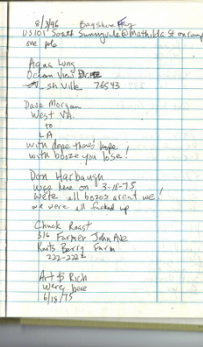 8/3/96 Bayshore Fwy
US101 South Sunnyvale @ Mathilda St on ramp
one pole
Aqua Lung
Ocean View
Ville 76543
Dave Morgan
West VA.
to
LA
with dope theres hope!
with booze you lose!
Don Harbaugh
was here on 3-10-75
We're all bozos arent we!
we were all fucked up
Chuck Roast
316 Farmer John Ave
Knotts Berry Farm
222-2222
Art & Rich
Were here
6/15/75